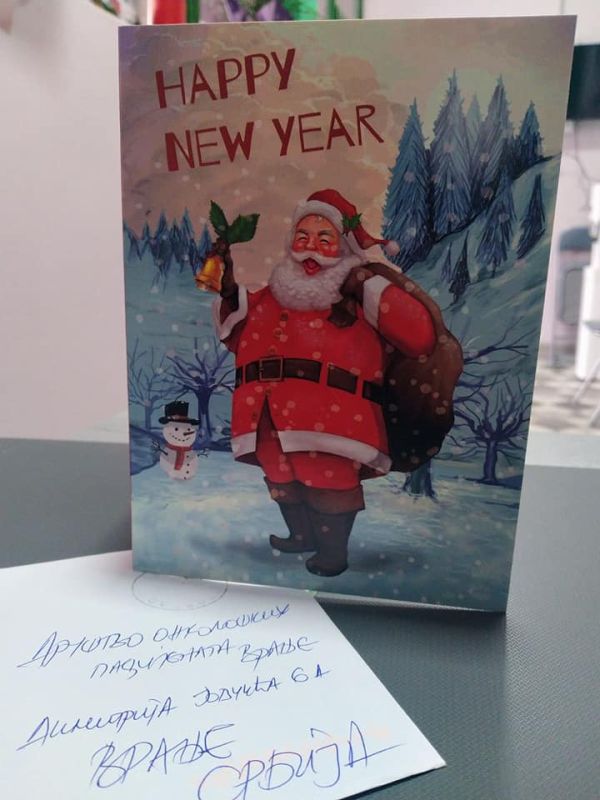 HAPPY
NEW YEAR
ДРУШТВО ОНКОЛОШКИХ
ПАЦИЈЕНАТА ВРАЊЕ
ДИМИТРИЈА 6 А
ВРАЊЕ
СРБИЈА